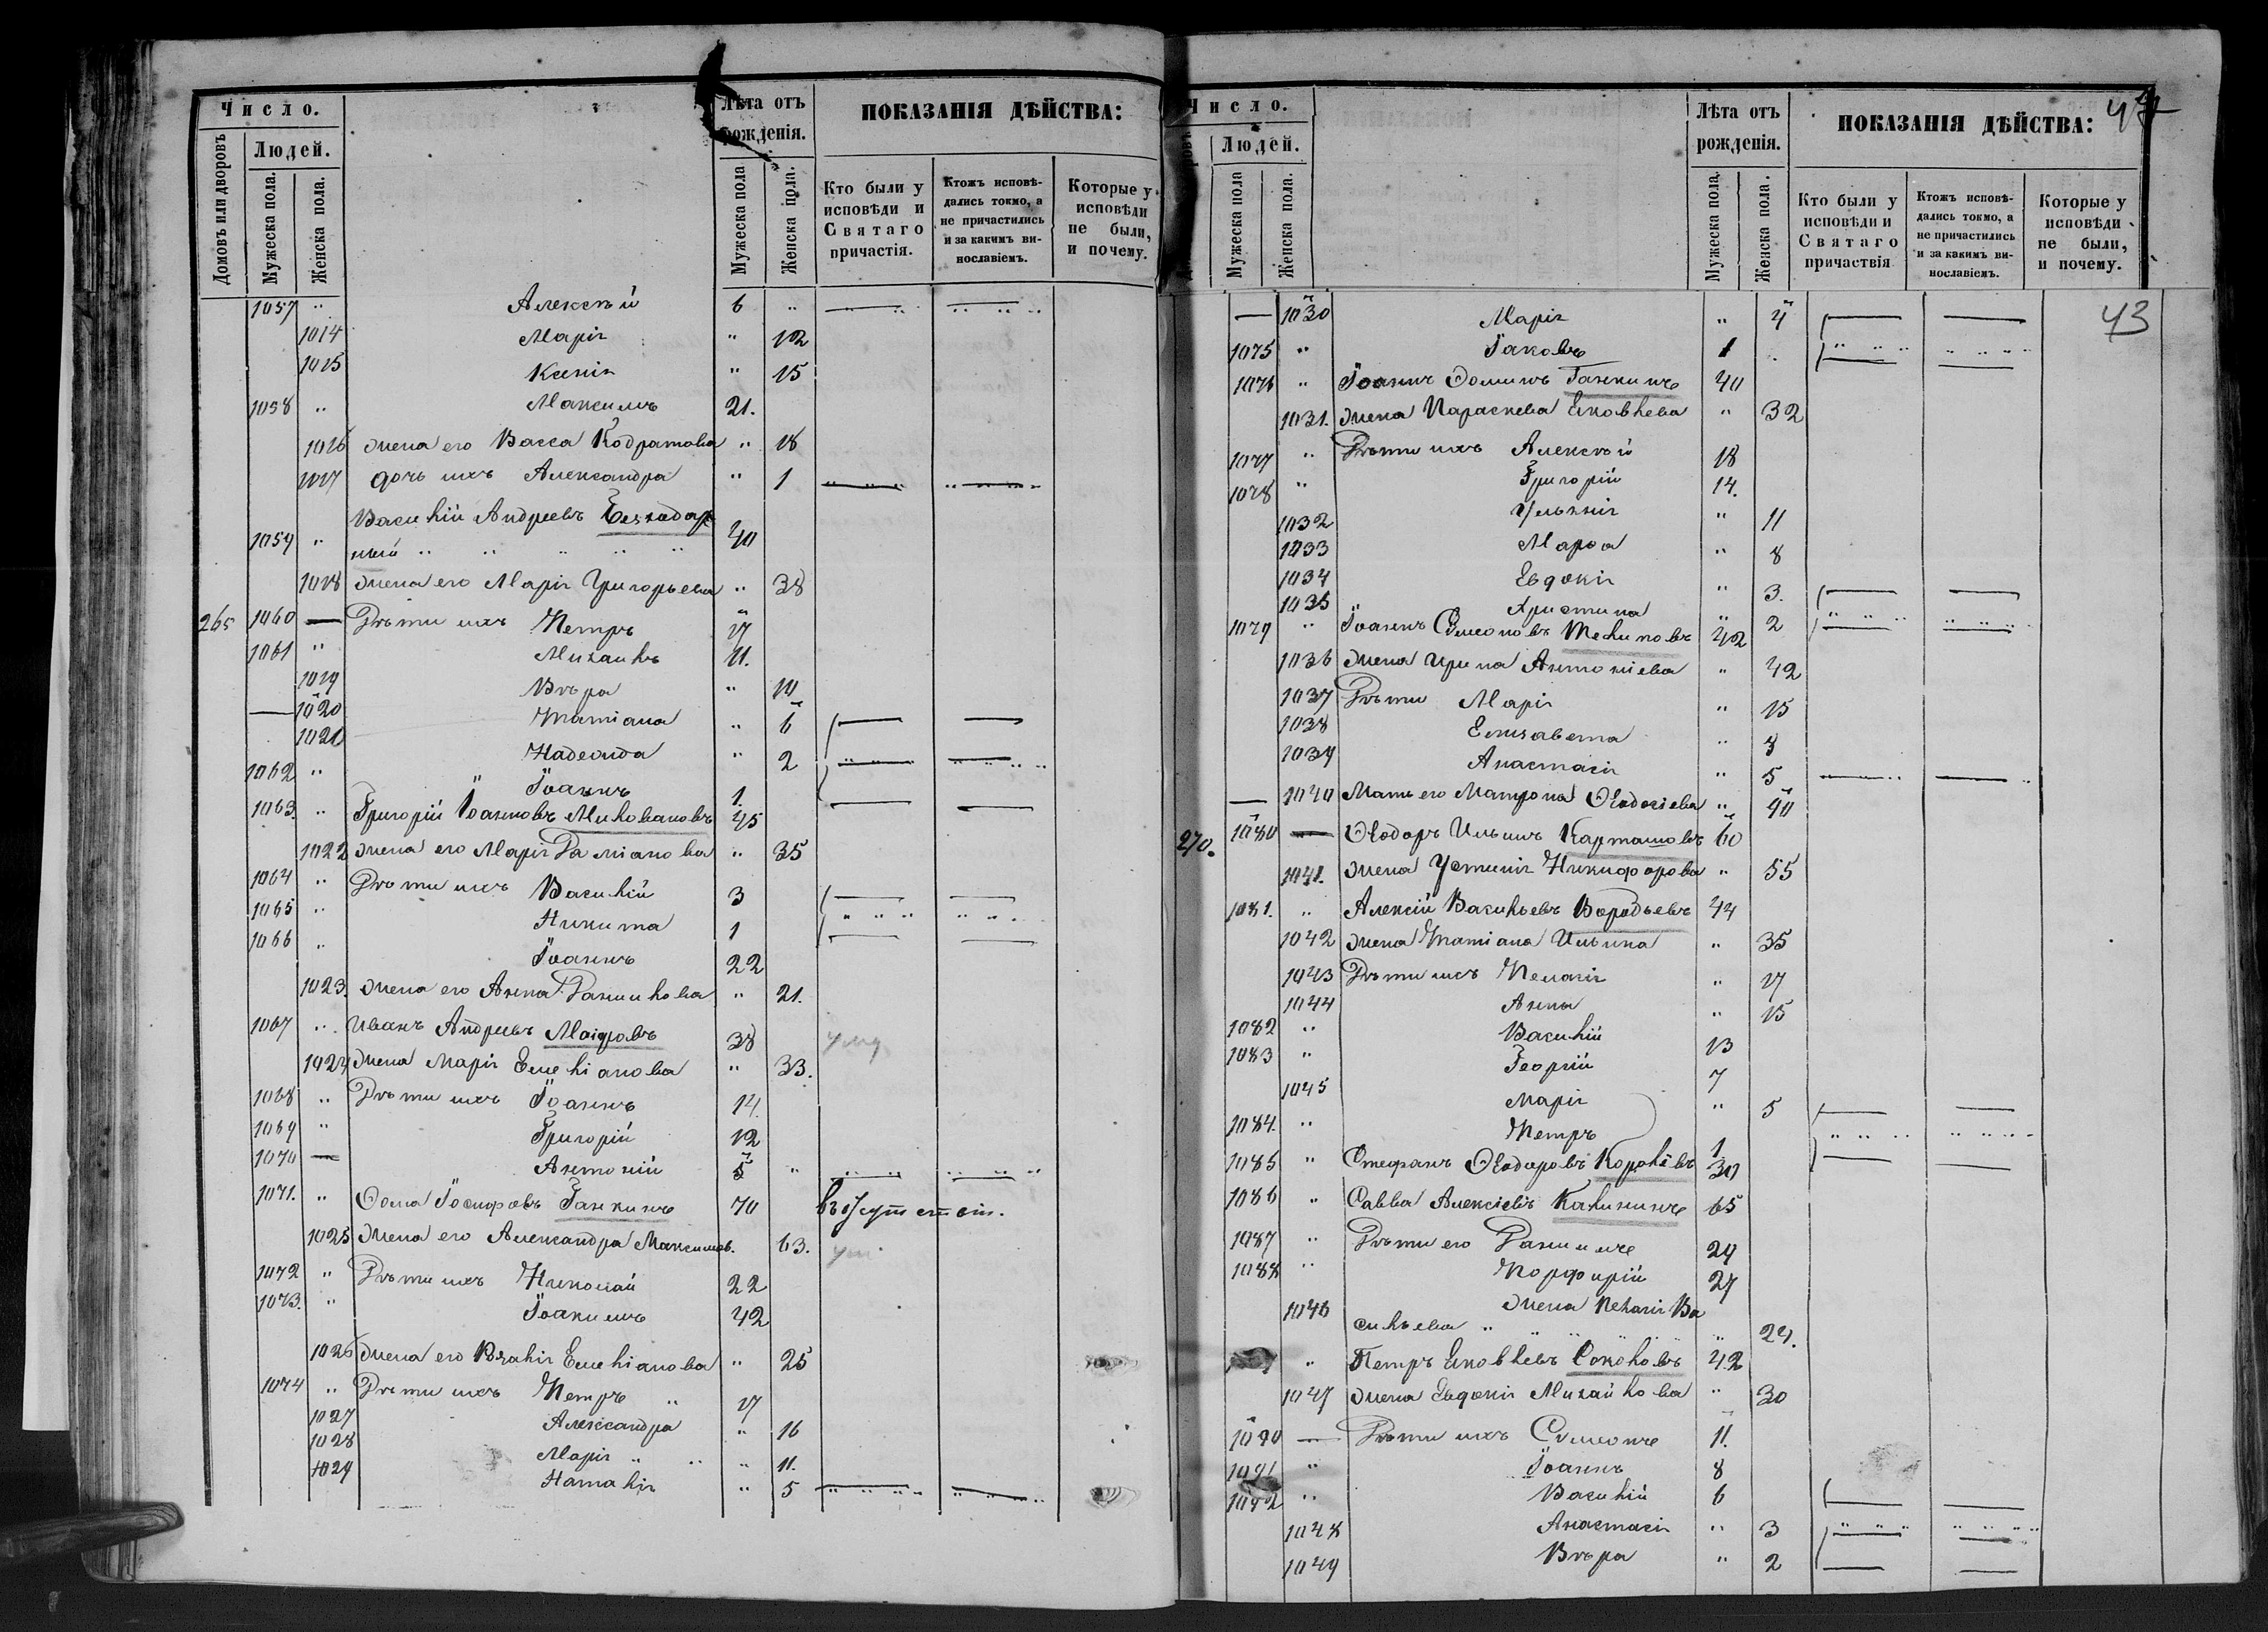 Число.
Лѣта отъ рожденія.
ПОКАЗАНІЯ ДѢЙСТВА:
Домовъ или дворовъ
Людей.
Мужеска пола.
Женска пола.
Мужеска пола
Женска пола.
Кто были у исповѣди и Святаго причастія.
Ктожъ исповѣдались токмо, а не причастились и за какимъ винославіемъ.
Которые у исповѣди не были, и почему.
1057 " Алексѣй 6 "
1014 Марія " 12
1015 Ксенія " 15
1058 " Максимъ 21.
1016 жена его Васса Кодратова " 18
1017 дочь ихъ Александра " 1
Василій Андреевъ
1059 " ный " " " " " 40
1018 жена его Марія Григорьева " 38
265 1060 — Дѣти ихъ Петръ 17
1061 " Михаилъ 11.
1019 Вѣра " 10
— 1020 Татіана " 6
1021 Надежда " 2
1062 " Іоаннъ 1.
1063. " Григорій Іоанновъ Миловановъ 45
1022 жена его Марія Даміанова " 35
1064 " Дѣти ихъ Василій 3
1065 " Никита 1
1066 " Іоаннъ 22
1023. жена его Анна Даниилова " 21.
1067 " Иванъ Андреевъ 38
1024 жена Марія Емеліанова " 33.
1068 " Дѣти ихъ Іоаннъ 14.
1069 " Григорій 12
1070 — Антоній 5 "
1071. " Ѳома Іосифовъ Ганкинъ 70
1025 жена его Александра Максимов. 63.
1072 " Дѣти ихъ Николай 22
1073. " Іоакимъ 42
1026 жена его Емеліанова " 25
1074 " Дѣти ихъ Петръ " 17
1027 Александра " 16
1028 Марія " " " 11.
1029 Наталія " 5
Число.
Лѣта отъ рожденія.
ПОКАЗАНІЯ ДѢЙСТВА:
Людей.
Мужеска пола
Женска пола.
Мужеска пола.
Женска пола.
Кто были у исповѣди и Святаго причаствія
Ктожъ исповѣдались токмо, а не причастились и за какимъ винославіемъ.
Которые у исповѣди не были, и почему.
43
— 1030 Марія " 4
1075 " Іаковъ 1 "
1076 " Іоаннъ Ѳоминъ Ганкинъ 40
1031. жена Параскева Яковлева " 32
1077 " Дѣти ихъ Алексѣй 18
1078 " Григорій 14.
1032 Ульянія " 11
1033 Марѳа " 8
1034 Евдокія " 3.
1035 Христина " 2
1079 " Іоаннъ Симеоновъ 42
1036 жена Ирина Антоніева " 42
1037 Дѣти Марія " 15
1038 Елизавета "
1039 Анастасія " 5
— 1040 Мать его Матрона Ѳеодосіева "
270. 1080 — Ѳеодоръ Ильинъ Карташовъ 60
1041. жена Устинія Никифорова " 55
1081. " Алексій Васильевъ 44
1042 жена Татіана Ильина " 35
1043 Дѣти ихъ Пелагія " 17
1044 Анна " 15
1082 " Василій 13
1083 " Георгій 7
1045 Марія " 5
1084. " Петръ 1
1085 " Стефанъ Ѳеодоровъ Королёвъ 30
1086 " Савва Алексіевъ Калининъ 65
1087 " Дѣти его Даниилъ 29
1088 " Порфирій 27
1046 жена Пелагія Ва
сильева " " " " " 24.
" Петръ Яковлевъ Соколовъ 42
1047 жена Евдокія Михайлова " 30
1090 — Дѣти ихъ Симеонъ 11.
1091 " Іоаннъ 8
1092 " Василій 6
1048 Анастасія " 3
1049 Вѣра " 2